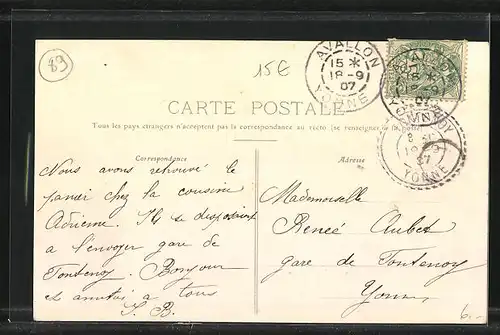 89
15€
AVALLON
15 *
18-9
07
YONNE
AVALLON
15 *
18-9
07
CARTE POSTALE
Tous les pays étrangers n'acceptent pas la correspondance au recto (se renseigner à la poste)
YONNE
Correspondance
Adresse
Nous avons retrouvé le
panier chez la cousine
Adrienne. Ils se disposaient
à l'envoyer gare de
Fontenoy. Bonjour
et amitiés à tous
S. B.
Mademoiselle
Renée Aubet
gare de Fontenoy
Yonne
6.-